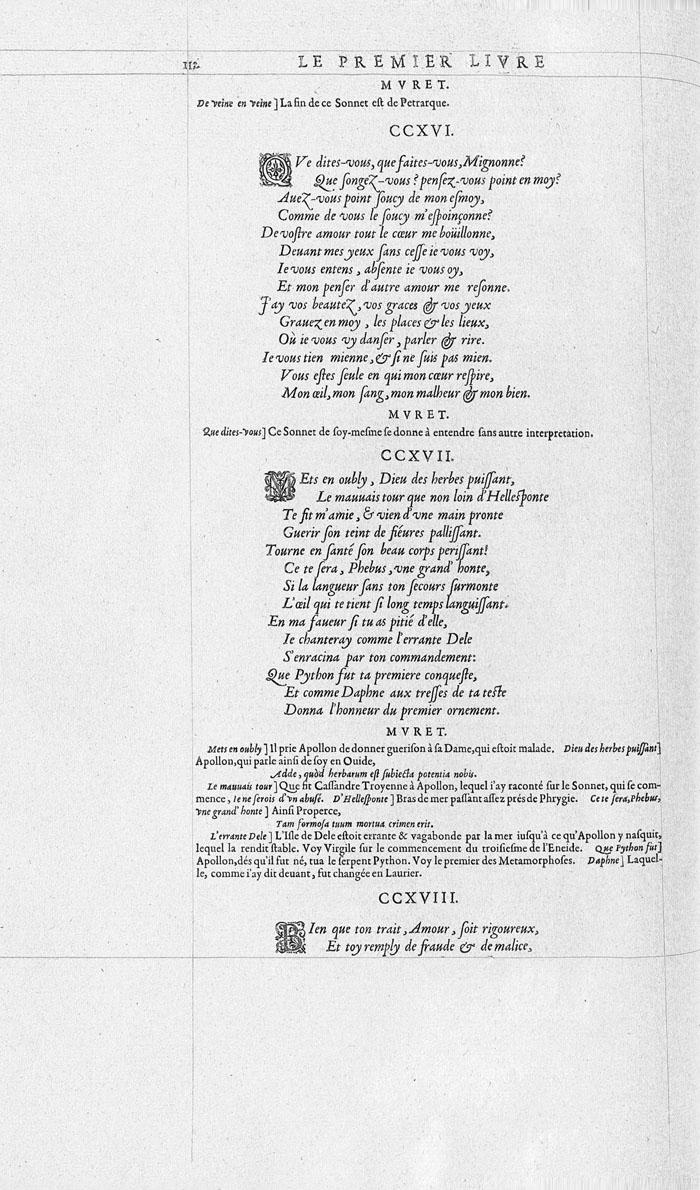 112. LE PREMIER LIVRE
MVRET.
De veine en veine ] La fin de ce Sonnet eſt de Petrarque.
CCXVI.
QVe dites-vous, que faites-vous, Mignonne?
Que ſongez-vous? penſez-vous point en moy?
Auez-vous point ſoucy de mon eſmoy,
Comme de vous le ſoucy m'eſpoinçonne?
De voſtre amour tout le cœur me boüillonne,
Deuant mes yeux ſans ceſſe ie vous voy,
Ie vous entens, abſente ie vous oy,
Et mon penſer d'autre amour me reſonne.
J'ay vos beautez, vos graces & vos yeux
Grauez en moy, les places & les lieux,
Où ie vous vy danſer, parler & rire.
Ie vous tien mienne, & ſi ne ſuis pas mien.
Vous eſtes ſeule en qui mon cœur reſpire,
Mon œil, mon ſang, mon malheur & mon bien.
MVRET.
Que dites-vous] Ce Sonnet de ſoy-meſme ſe donne à entendre ſans autre interpretation.
CCXVII.
METs en oubly, Dieu des herbes puiſſant,
Le mauuais tour que non loin d'Helleſponte
Te fit m'amie, & vien d'vne main pronte
Guerir ſon teint de fiéures palliſſant.
Tourne en ſanté ſon beau corps periſſant!
Ce te ſera, Phebus, vne grand' honte,
Si la langueur ſans ton ſecours ſurmonte
L'œil qui te tient ſi long temps languiſſant.
En ma faueur ſi tu as pitié d'elle,
Ie chanteray comme l'errante Dele
S'enracina par ton commandement:
Que Python fut ta premiere conqueſte,
Et comme Daphne aux treſſes de ta teſte
Donna l'honneur du premier ornement.
MVRET.
Mets en oubly ] Il prie Apollon de donner gueriſon à ſa Dame, qui eſtoit malade. Dieu des herbes puiſſant]
Apollon, qui parle ainſi de ſoy en Ouide,
Adde, quòd herbarum eſt ſubiecta potentia nobis.
Le mauuais tour ] Que fit Caſſandre Troyenne à Apollon, lequel i'ay raconté ſur le Sonnet, qui ſe com-
mence, Ie ne ſerois d'vn abuſé. D'Helleſponte ] Bras de mer paſſant aſſez prés de Phrygie. Ce te ſera, Phebus,
vne grand' honte ] Ainſi Properce,
Tam formoſa tuum mortua crimen erit.
L'errante Dele ] L'Iſle de Dele eſtoit errante & vagabonde par la mer iuſqu'à ce qu'Apollon y naſquit,
lequel la rendit ſtable. Voy Virgile ſur le commencement du troiſieſme de l'Eneide. Que Python fut]
Apollon, dés qu'il fut né, tua le ſerpent Python. Voy le premier des Metamorphoſes. Daphne ] Laquel-
le, comme i'ay dit deuant, fut changée en Laurier.
CCXVIII.
BIen que ton trait, Amour, ſoit rigoureux,
Et toy remply de fraude & de malice,